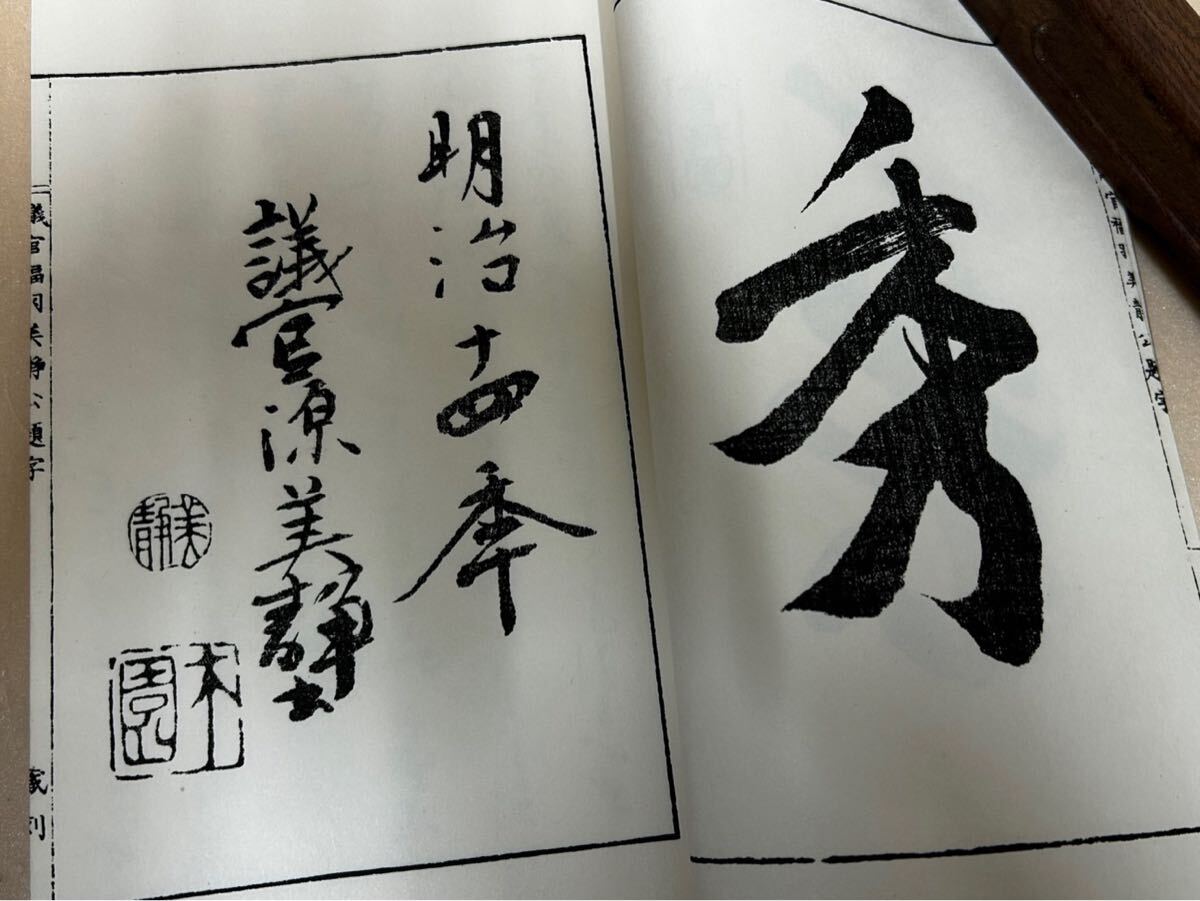 秀
官福羽美静公題字
明治十四秊
議官源美静
美静
木園
議官福羽美静公題字